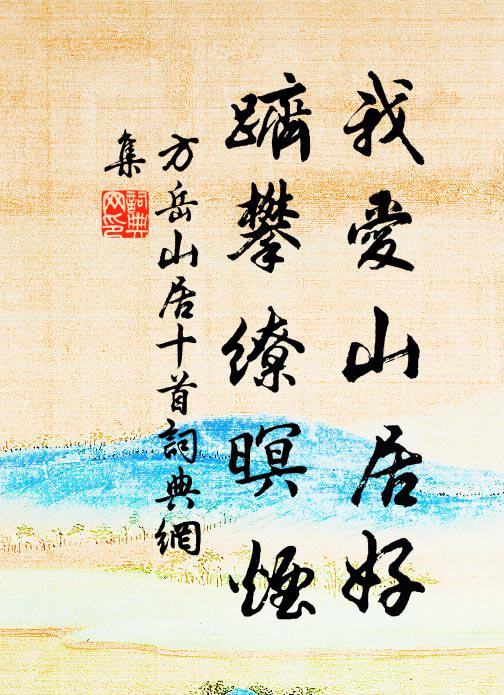 我愛山居好
躋攀繚暝煙
方岳山居十首詞典網
集
詞典
网印